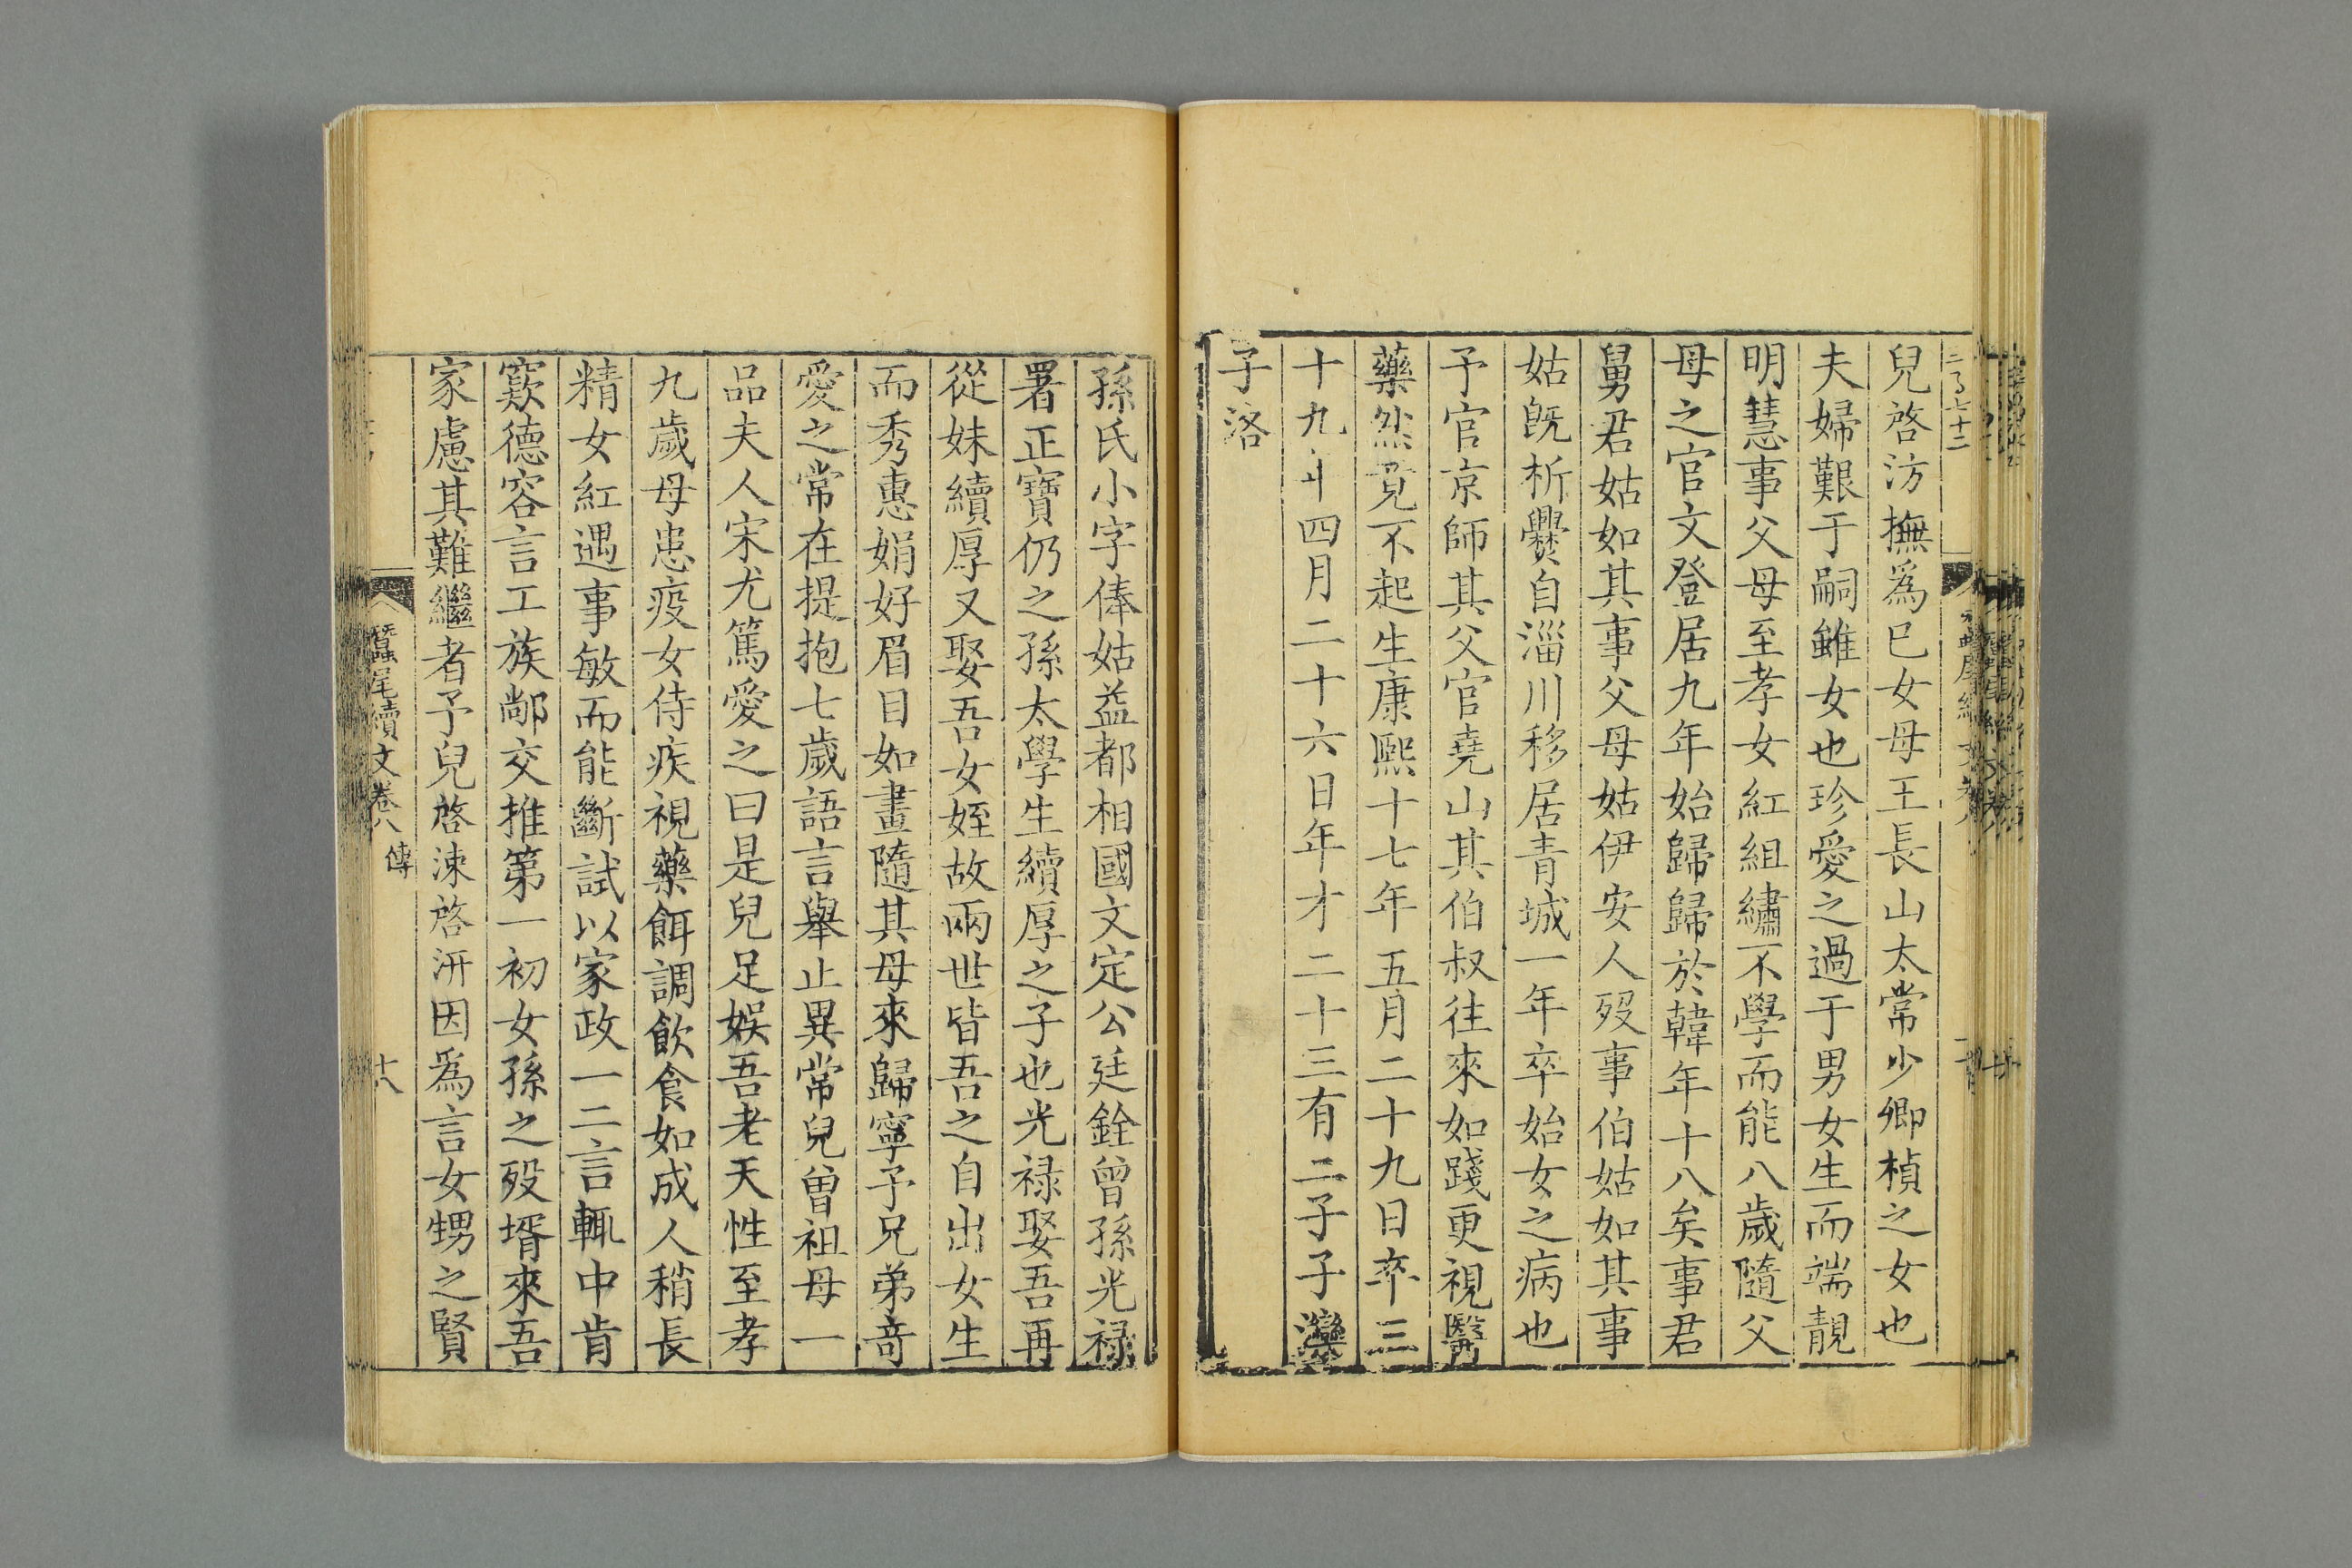 兒啓汸撫爲已女母王長山太常少卿楨之女也
夫婦艱于嗣雖女也珍愛之過于男女生而端靚
明慧事父母至孝女紅組繡不學而能八歲隨父
母之官文登居九年始歸歸於韓年十八矣事君
舅君姑如其事父母姑伊安人歿事伯姑如其事
姑旣析爨自淄川移居青城一年卒始女之病也
予官京師其父官堯山其伯叔往來如踐更視醫
藥然竟不起生康熙十七年五月二十九日卒三
十九年四月二十六日年才二十三有二子子灤
子洛
孫氏小字俸姑益都相國文定公廷銓曾孫光禄
署正寶仍之孫太學生續厚之子也光禄娶吾再
從妹續厚又娶吾女姪故兩世皆吾之自出女生
而秀惠娟好眉目如畫隨其母來歸寧予兄弟竒
愛之常在提抱七歲語言舉止異常兒曾祖母一
品夫人宋尤篤愛之曰是兒足娛吾老天性至孝
九歲母患疫女侍疾視藥餌調飲食如成人稍長
精女紅遇事敏而能斷試以家政一二言輒中肯
窾德容言工族鄰交推第一初女孫之歿壻來吾
家慮其難繼者予兒啓涑啓汧因爲言女甥之賢
蠶尾續文卷八 傳 十八